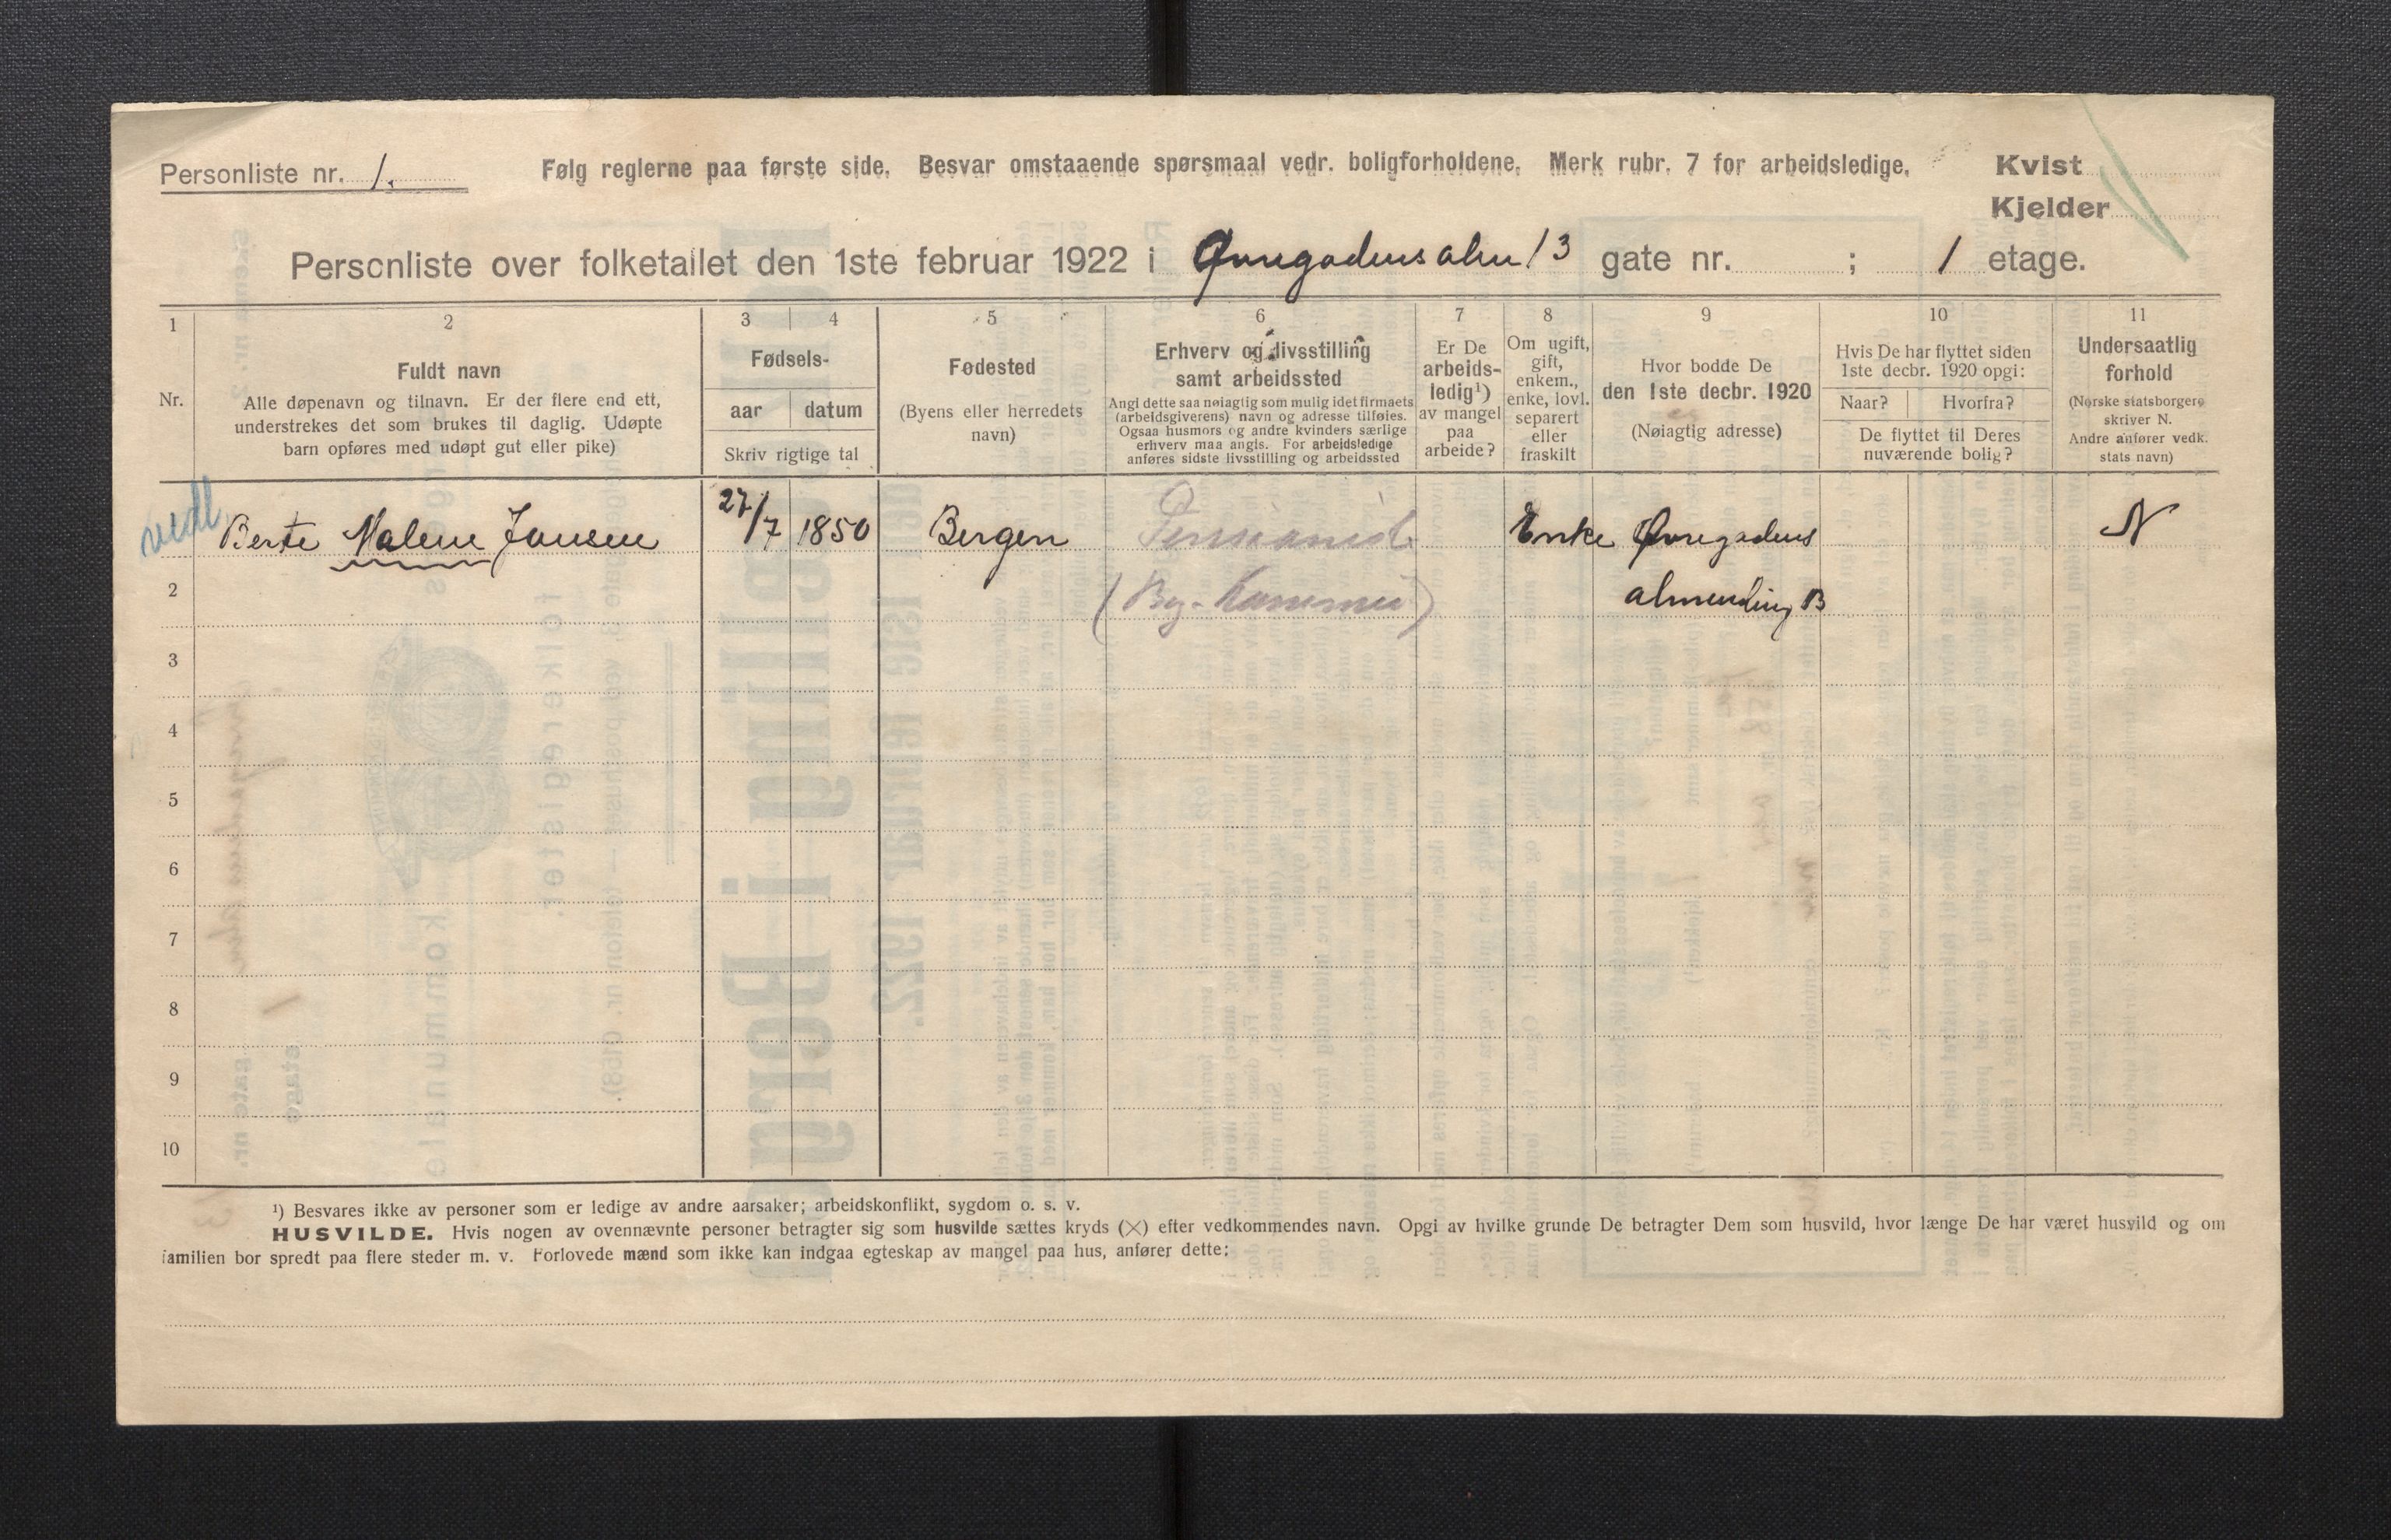 Personliste nr. 1.
Følg reglerne paa første side. Besvar omstaaende spørsmaal vedr. boligforholdene. Merk rubr. 7 for arbeidsledige.
Kvist
Kjelder
Personliste over folketallet den 1ste februar 1922 i Øvregadens alm 13 gate nr. ; 1 etage.
1
Nr.
2
Fuldt navn
Alle døpenavn og tilnavn. Er der flere end ett,
understrekes det som brukes til daglig. Udøpte
barn opføres med udøpt gut eller pike)
3 4
Fødsels-
aar datum
Skriv rigtige tal
5
Fødested
(Byens eller herredets
navn)
6
Erhverv og livsstilling
samt arbeidssted
Angi dette saa nøiagtig som mulig idet firmaets
(arbeidsgiverens) navn og adresse tilføies.
Ogsaa husmors og andre kvinders særlige
erhverv maa angis. For arbeidsledige
anføres sidste livsstilling og arbeidssted
7
Er De
arbeids-
ledig¹)
av mangel
paa
arbeide?
8
Om ugift,
gift,
enkem.,
enke, lovl.
separert
eller
fraskilt
9
Hvor bodde De
den 1ste decbr. 1920
(Nøiagtig adresse)
10
Hvis De har flyttet siden
1ste decbr. 1920 opgi:
Naar? Hvorfra?
De flyttet til Deres
nuværende bolig?
11
Undersaatlig
forhold
(Norske statsborgere
skriver N.
Andre anfører vedk.
stats navn)
Berte Malene Jansen 27/7 1850 Bergen Enke Øvregadens N
2 almending 13
3
4
5
6
7
8
9
10
¹) Besvares ikke av personer som er ledige av andre aarsaker; arbeidskonflikt, sygdom o. s. v.
HUSVILDE. Hvis nogen av ovennævnte personer betragter sig som husvilde sættes kryds (×) efter vedkommendes navn. Opgi av hvilke grunde De betragter Dem som husvild, hvor længe De har været husvild og om
familien bor spredt paa flere steder m. v. Forlovede mænd som ikke kan indgaa egteskap av mangel paa hus, anfører dette: